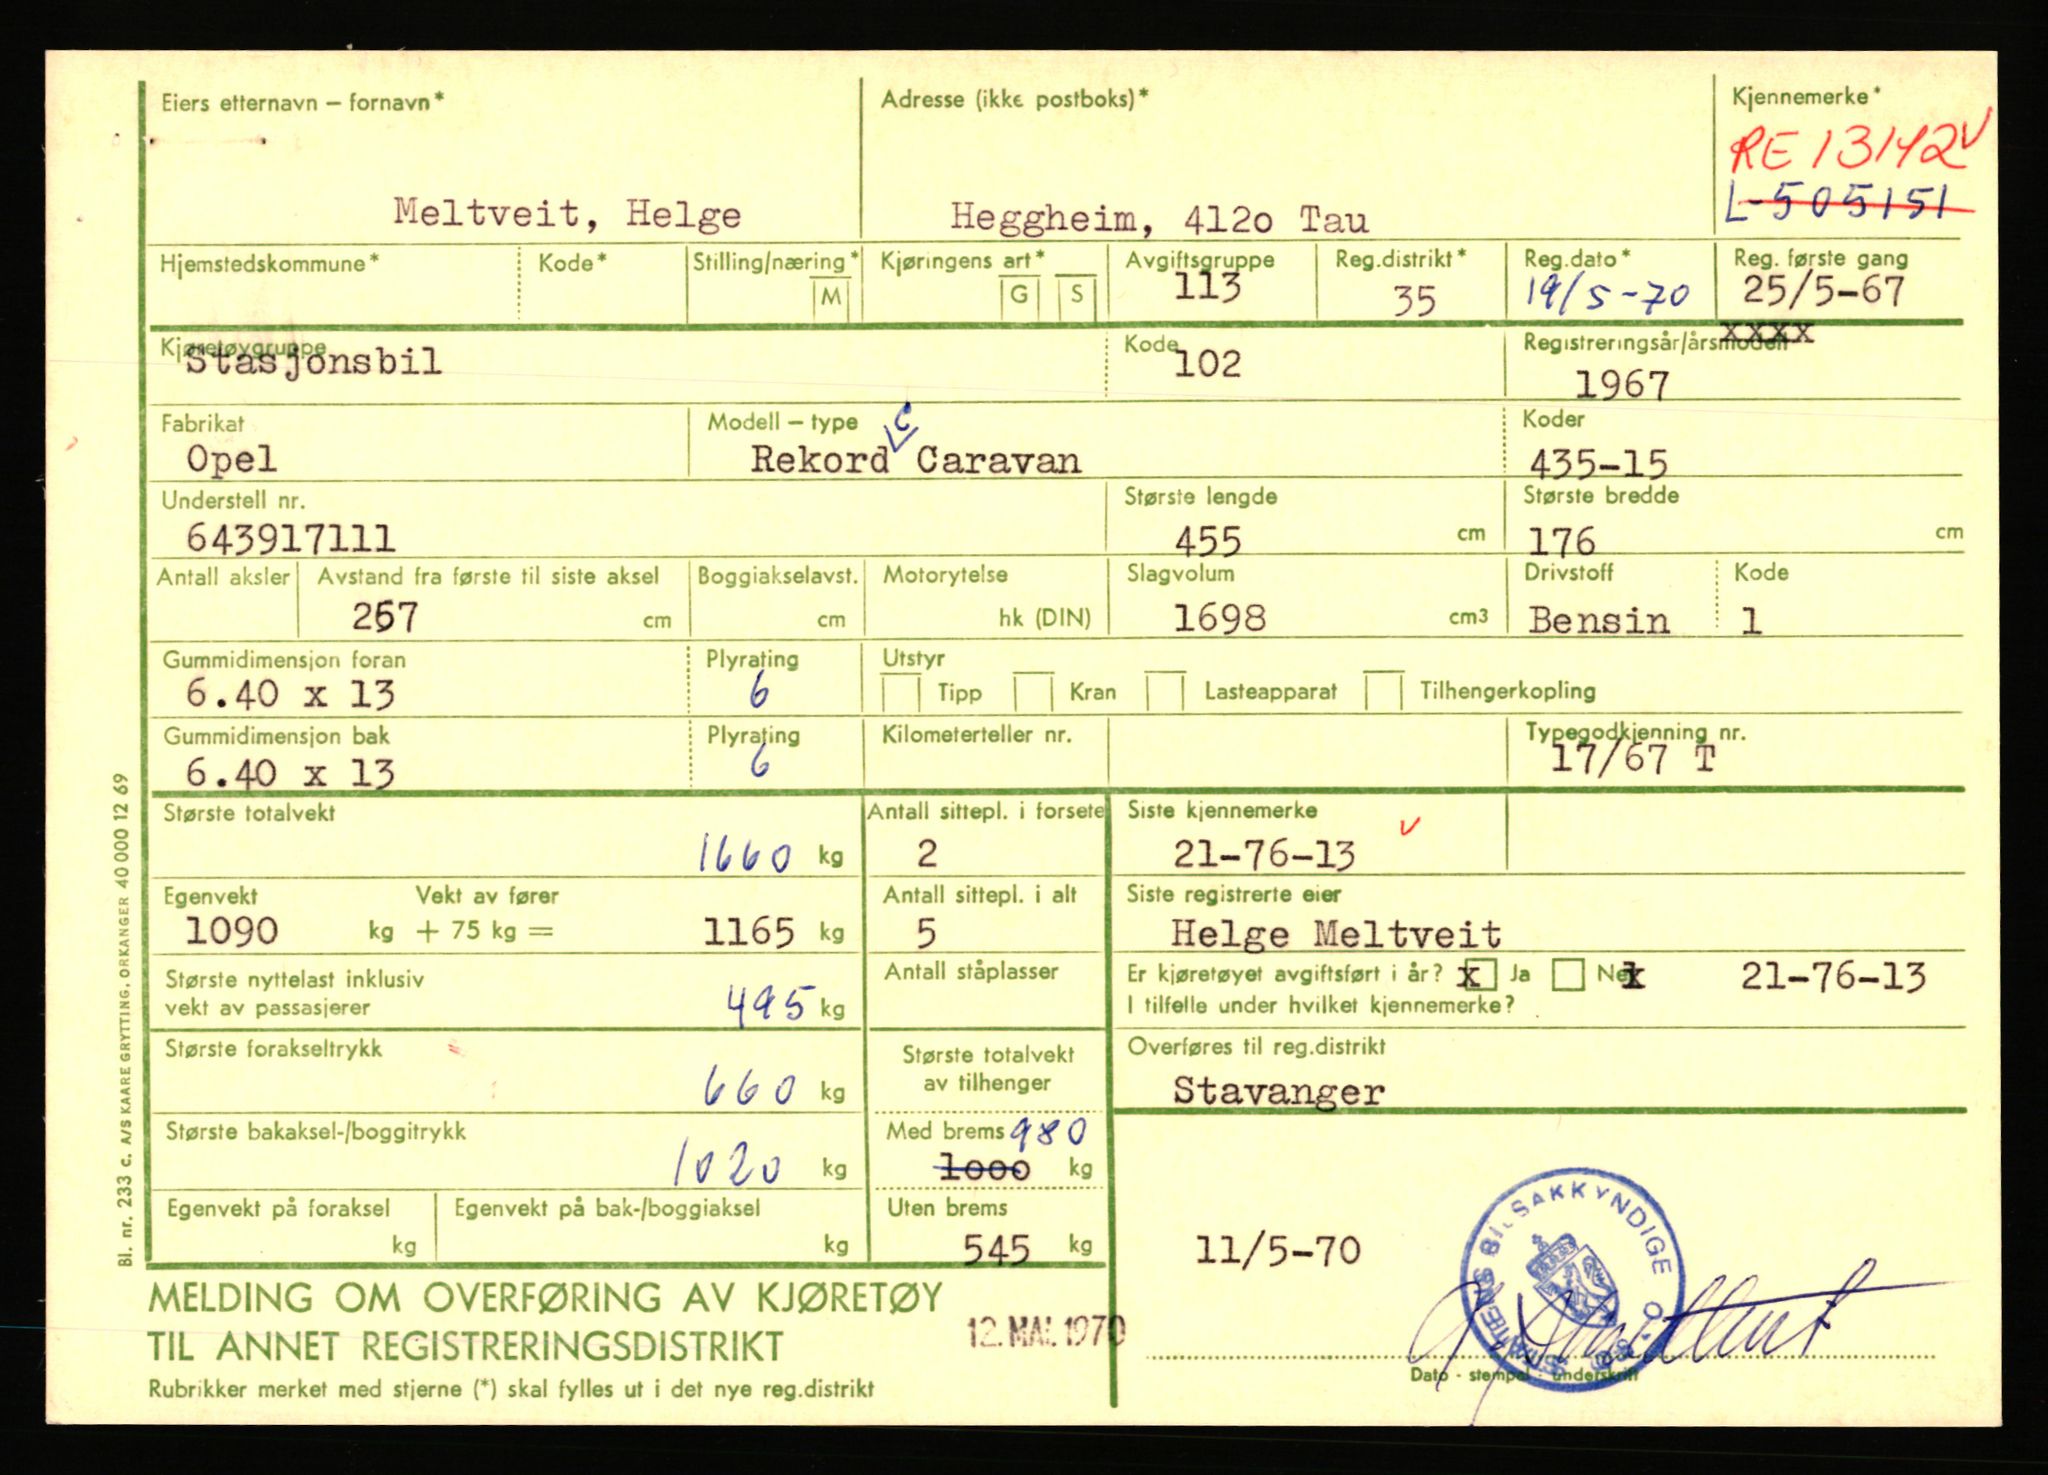 Eiers etternavn – fornavn*
Adresse (ikke postboks)*
Kjennemerke*
RE 13142 v
L-505151
Meltveit, Helge
Heggheim, 412o Tau
Hjemstedskommune*
Kode*
Stilling/næring*
M
Kjøringens art*
G
S
Avgiftsgruppe
113
Reg.distrikt*
35
Reg.dato*
19/5-70
Reg. første gang
25/5-67
Kjøretøygruppe
Stasjonsbil
Kode
102
Registreringsår/årsmodell
xxxx
1967
Fabrikat
Opel
Modell – type
Rekord C Caravan
Koder
435-15
Understell nr.
643917111
Største lengde
455 cm
Største bredde
176 cm
Antall aksler
Avstand fra første til siste aksel
267 cm
Boggiakselavst.
cm
Motorytelse
hk (DIN)
Slagvolum
1698 cm3
Drivstoff
Bensin
Kode
1
Gummidimensjon foran
6.40 x 13
Plyrating
6
Utstyr
Tipp
Kran
Lasteapparat
Tilhengerkopling
Gummidimensjon bak
6.40 x 13
Plyrating
6
Kilometerteller nr.
Typegodkjenning nr.
17/67 T
Største totalvekt
1660 kg
Antall sittepl. i forsete
2
Siste kjennemerke
21-76-13 v
Egenvekt
Vekt av fører
1090 kg + 75 kg = 1165 kg
Antall sittepl. i alt
5
Siste registrerte eier
Helge Meltveit
Største nyttelast inklusiv
vekt av passasjerer
495 kg
Antall ståplasser
Er kjøretøyet avgiftsført i år? x Ja Nei x 21-76-13
I tilfelle under hvilket kjennemerke?
Største forakseltrykk
660 kg
Største totalvekt
av tilhenger
Overføres til reg.distrikt
Stavanger
Største bakaksel-/boggitrykk
1020 kg
Med brems 980
1000 kg
Egenvekt på foraksel
kg
Egenvekt på bak-/boggiaksel
kg
Uten brems
545 kg
11/5-70
STATENS BILSAKKYNDIGE
MELDING OM OVERFØRING AV KJØRETØY
TIL ANNET REGISTRERINGSDISTRIKT
12. MAI. 1970
Rubrikker merket med stjerne (*) skal fylles ut i det nye reg.distrikt
Dato - stempel - underskrift
Bl. nr. 233 c. A/S KAARE GRYTTING, ORKANGER 40 000 12 69